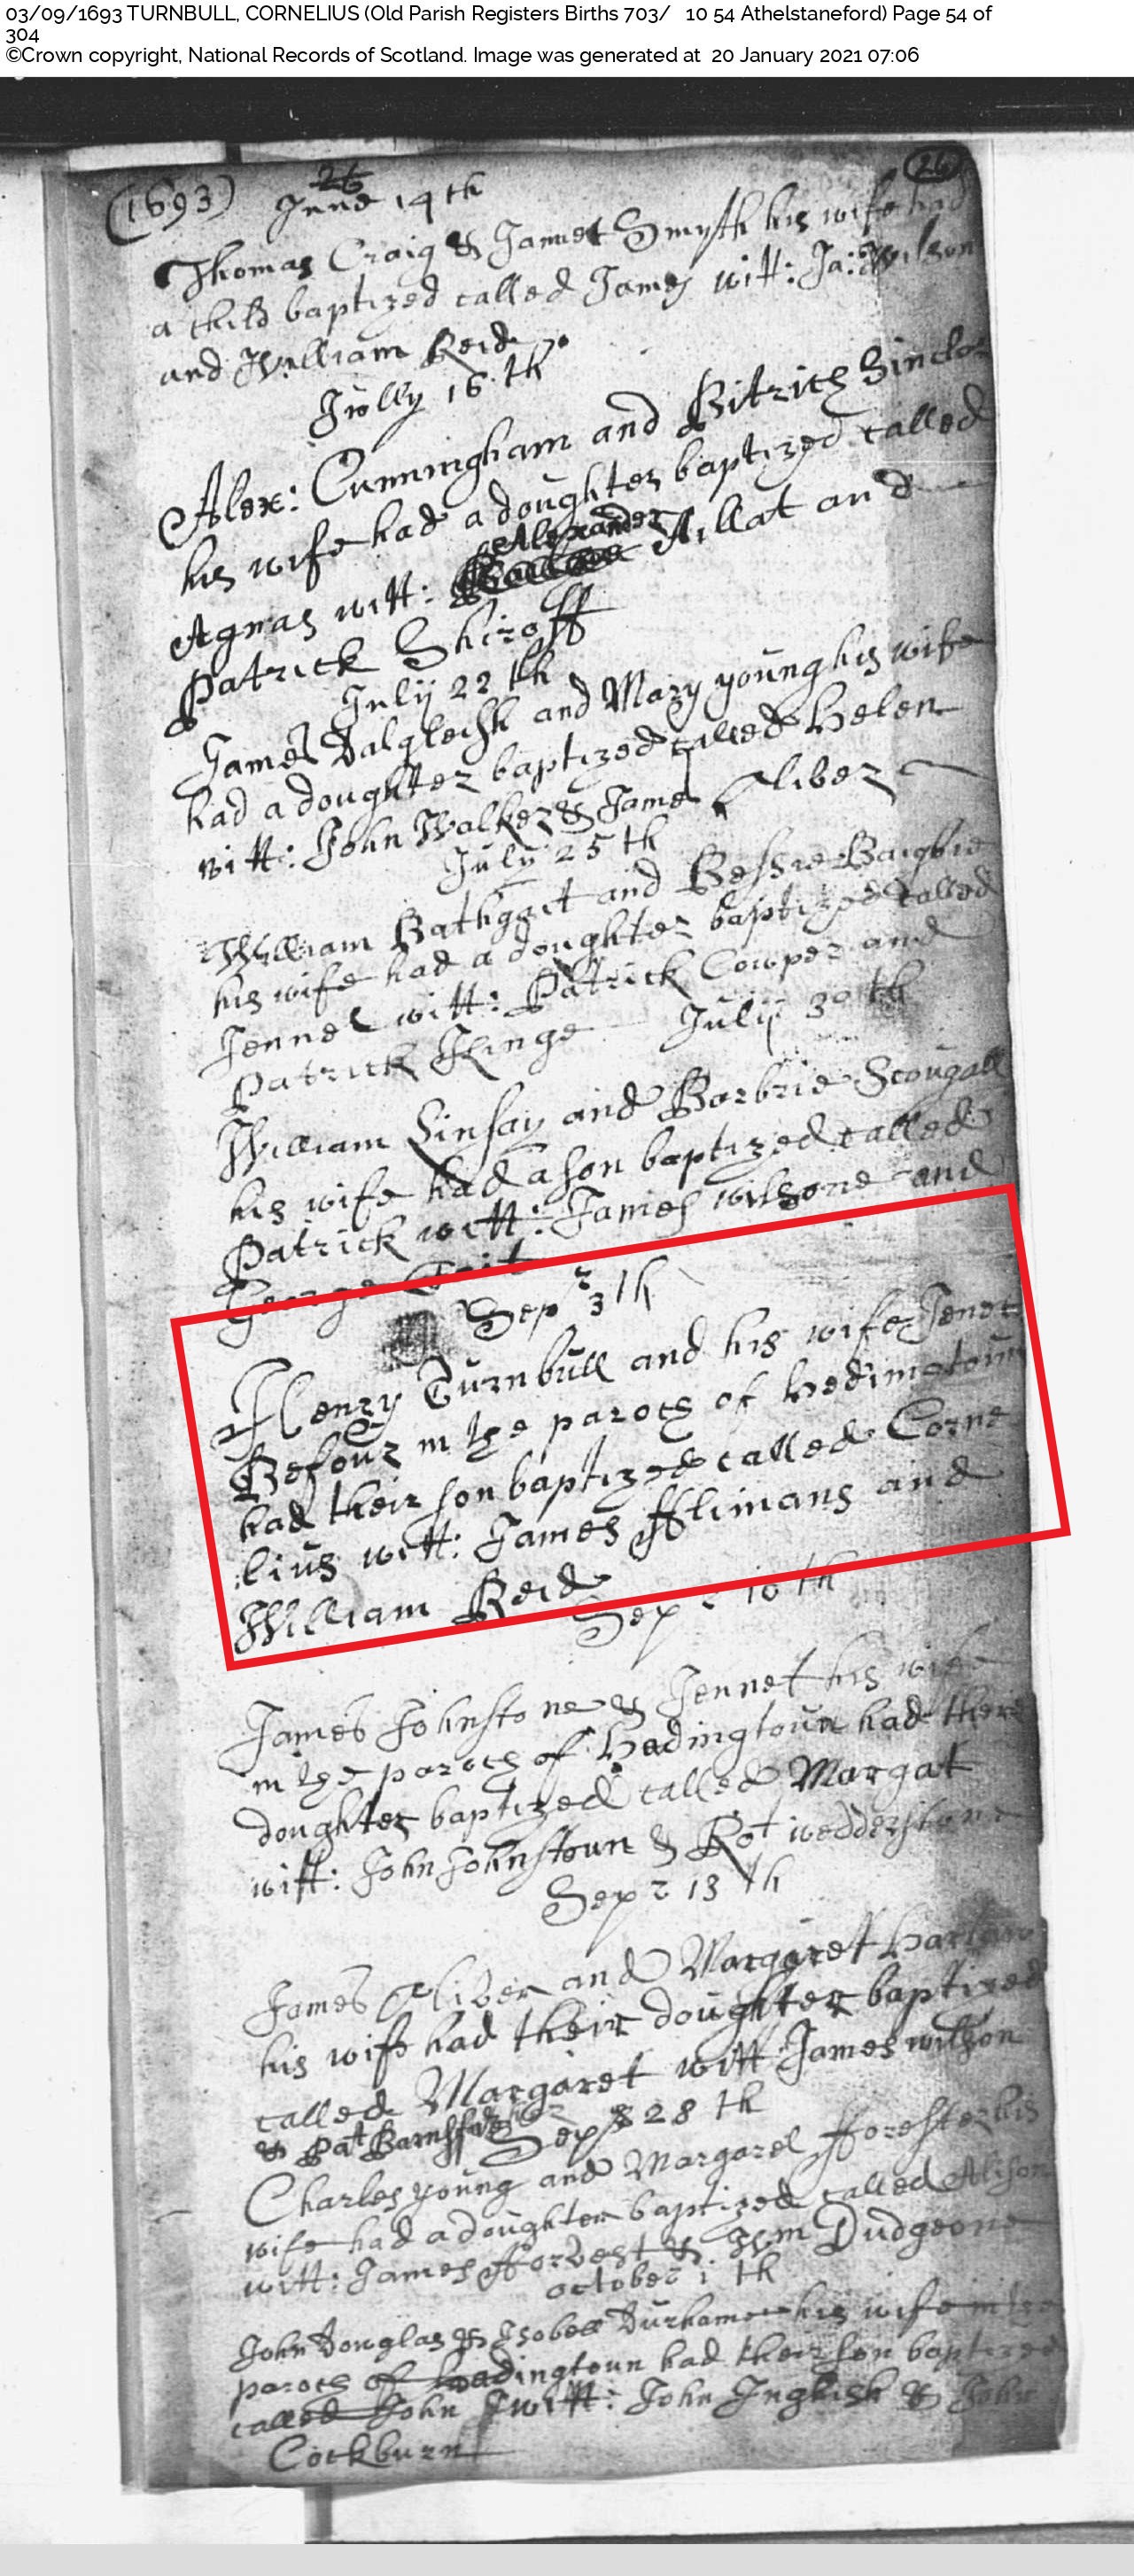 03/09/1693 TURNBULL, CORNELIUS (Old Parish Registers Births 703/ 10 54 Athelstaneford) Page 54 of
304
©Crown copyright, National Records of Scotland. Image was generated at 20 January 2021 07:06
26
(1693) June 14th
Thomas Craig & Jannet Smyth his wife had
a child baptized called James witt: Ja: Wilson
and William Reid
Jully 16 th
Alex: Cunningham and Bitrich Sincla
his wife had a doughter baptized called
Alexander
Agnas witt: Aillat and
Patrick Shiroff
July 22 th
James Dalgleish and Mary young his wife
had a doughter baptized called Helen
witt: John Walker & James Oliber
July 25 th
William Bathgait and Bessie Baigbie
his wife had a doughter baptized called
Jennet witt: Patrick Cowper and
Patrick Kinge July 30 th
William Linsay and Barbrie Scougall
his wife had a son baptized called
Patrick witt: James wilsone and
George Tait
Sepr 3 th
Henry Turnbull and his wife Jenet
Befour in the paroch of Hedinetoun
had their son baptized called Corne
lius witt: James and
William Reid
Sepr 10 th
James Johnstone & Jennet his wife
in the paroch of Hadingtoun had there
doughter baptized called Margat
witt: John Johnstoun & Rot wedderstone
Sepr 13 th
James Oliver and Margaret
his wife had their doughter baptized
called Margaret witt James wilson
& Pat Sepr 28 th
Charles young and Margaret fforester his
wife had a doughter baptized called Alison
witt: James fforrest & Wm Dudgeone
october 1 th
John Douglas & Isobell Durhame his wife in the
paroch of hadingtoun had their son baptized
called John witt: John Inglish & John
Cockburn